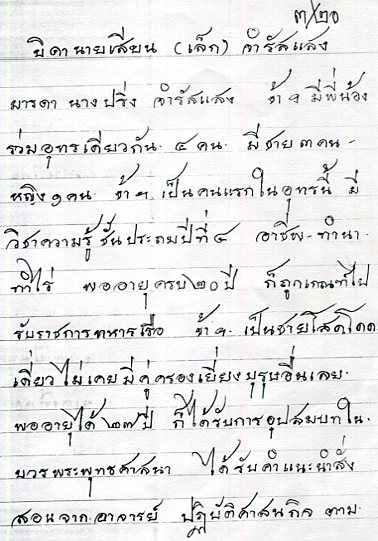 ๓/๒๐
บิดานายเสียน (เล็ก) จำรัสแสง
มารดา นางปริ่ง จำรัสแสง ข้าฯ มีพี่น้อง
ร่วมอุทรเดียวกัน ๔ คน. มีชาย ๓ คน -
หญิง ๑ คน. ข้าฯ เป็นคนแรกในอุทรนี้ มี
วิชาความรู้ ชั้นประถมปีที่ ๔ อาชีพ - ทำนา.
ทำไร่ พออายุครบ ๒๐ ปี ก็ถูกเกณฑ์ไป
รับราชการทหารเรือ ข้าฯ เป็นชายโสดโดด
เดี่ยวไม่เคยมีคู่ครองเยี่ยงบุรุษอื่นเลย.
พออายุได้ ๒๗ ปี ก็ได้รับการอุปสมบทใน.
บวรพระพุทธศาสนา ได้รับคำแนะนำสั่ง
สอนจาก.อาจารย์ ปฏิบัติศาสนกิจ ตาม.